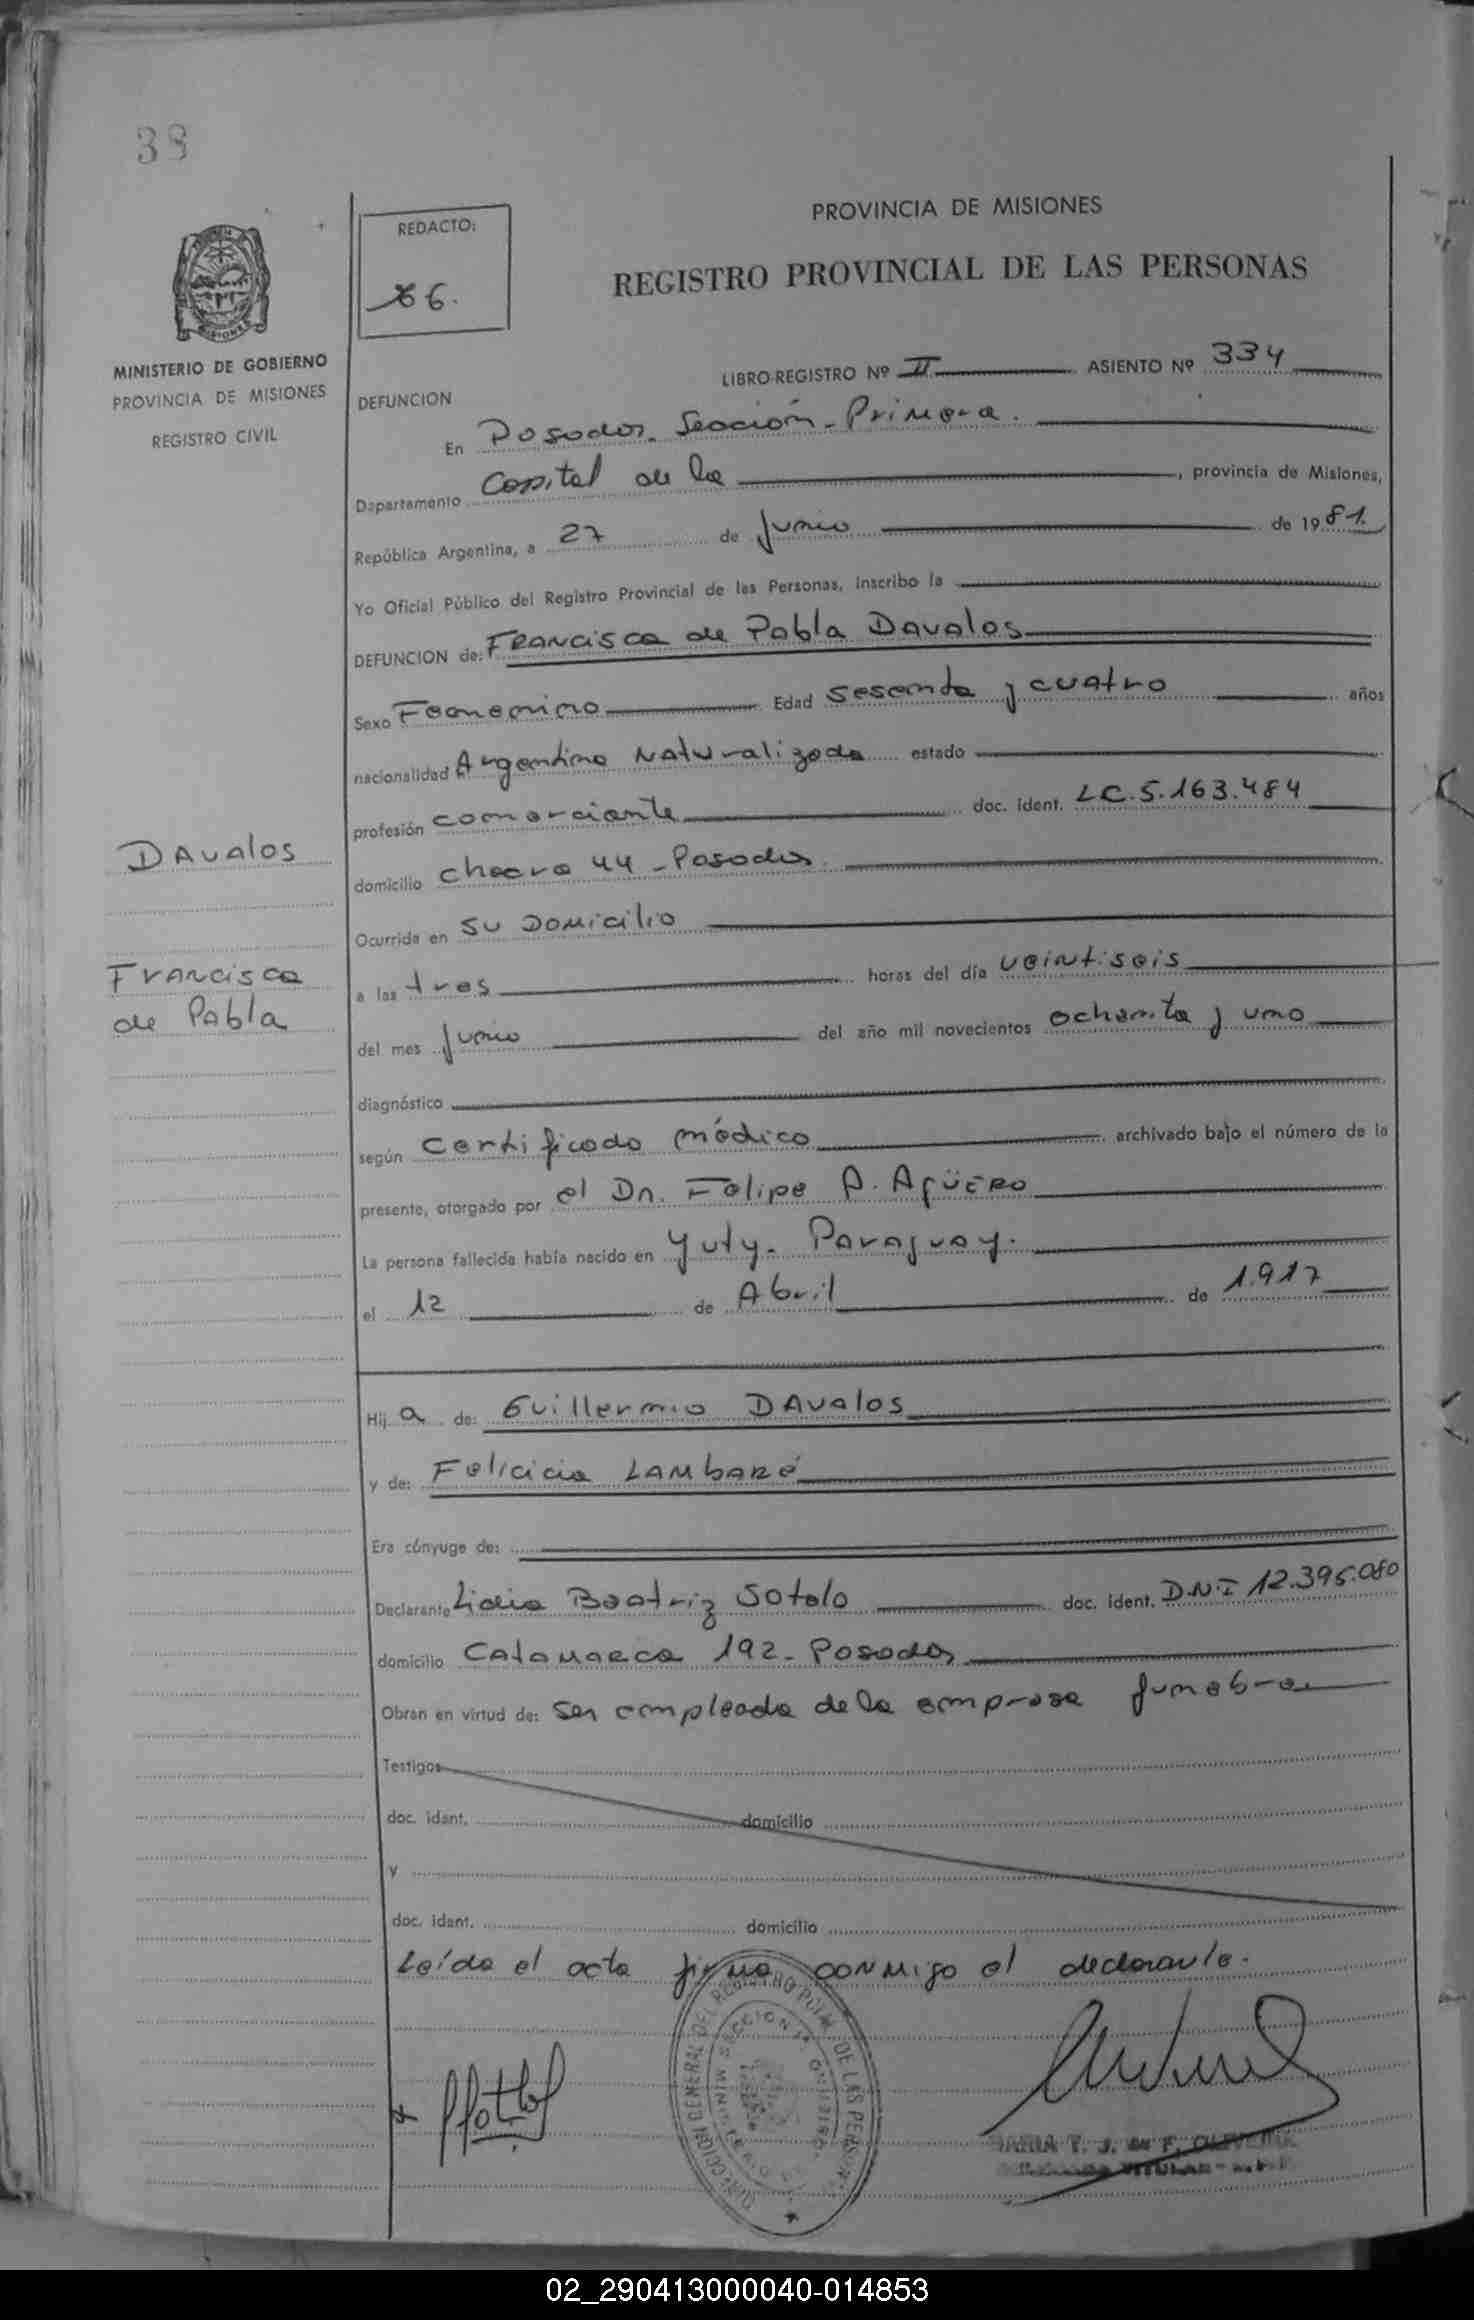 38
REDACTO:
66.
PROVINCIA DE MISIONES
REGISTRO PROVINCIAL DE LAS PERSONAS
MINISTERIO DE GOBIERNO
PROVINCIA DE MISIONES
REGISTRO CIVIL
LIBRO-REGISTRO Nº II ASIENTO Nº 334
DEFUNCION
En Posadas. Sección - Primera.
Departamento Capital de la, provincia de Misiones,
República Argentina, a 27 de Junio de 1981.
Yo Oficial Público del Registro Provincial de las Personas, inscribo la
DEFUNCION de: FRANCISCA de Pabla DAVALOS
Sexo Femenino Edad sesenta y cuatro años
nacionalidad Argentina NAturalizada estado
profesión comerciante doc. ident. LC.5.163.484
DAVALOS
domicilio chacra 44 - Posadas.
Ocurrida en SU DOMICILIO
FrANcisca
a las tres horas del día veintiseis
de Pabla
del mes Junio del año mil novecientos ochenta y uno
diagnóstico
según certificado médico archivado bajo el número de la
presente, otorgado por el Dr. Felipe A. AgÜERO
La persona fallecida había nacido en Yuty. Paraguay.
el 12 de Abril de 1.917
Hij a de: Guillermo DAVALOS
y de: Felicia LAMbARé
Era cónyuge de:
Declarante Lidia Beatriz Sotelo doc. ident. D.N.I 12.395.080
domicilio CATAMARCA 192 - Posadas
Obran en virtud de: Ser empleada de la empresa funebre
Testigos
doc. ident. domicilio
y
doc. ident. domicilio
Leída el acta firma conmigo el declarante.
DIRECCION GENERAL DEL REGISTRO PCIAL. DE LAS PERSONAS
MINISTERIO DE
SECCION 1ª
MARIA T. J. de F. OLIVEIRA
TITULAR
02_290413000040-014853